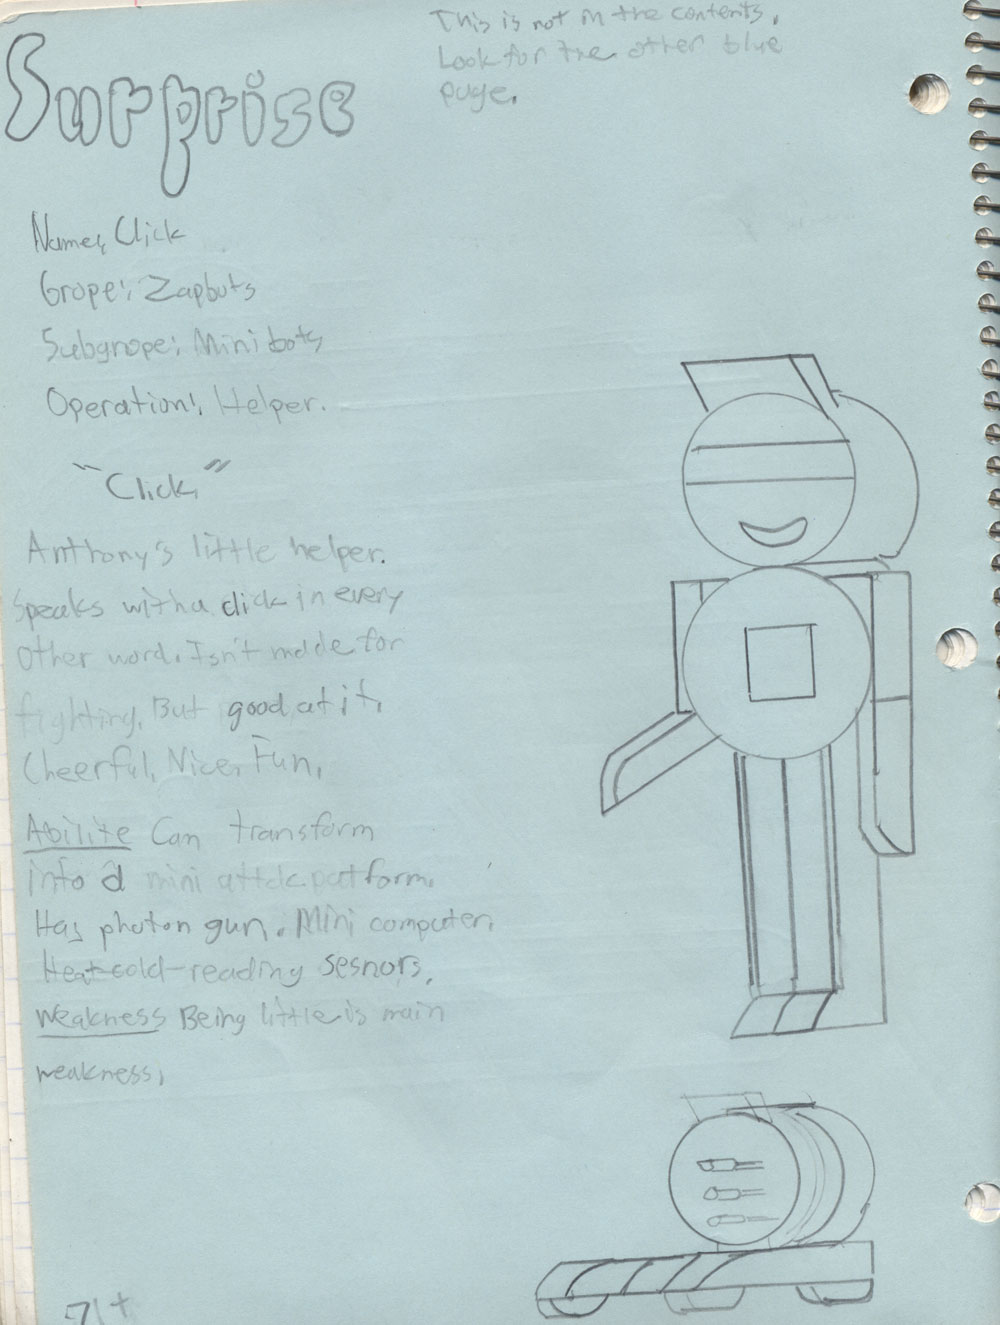 Surprise
This is not in the contents.
Look for the other blue
page.
Name: Click
Grope: Zapbots
Subgrope: Mini bots
Operation: Helper.
"Click"
Anthony's little helper.
Speaks with a click in every
other word. Isn't made for
fighting. But good at it.
Cheerful, Nice, Fun.
Abilite Can transform
into a mini attack patform.
Has photon gun. Mini computer.
Heat-cold-reading sesnors.
Weakness Being little is main
weakness.
71+